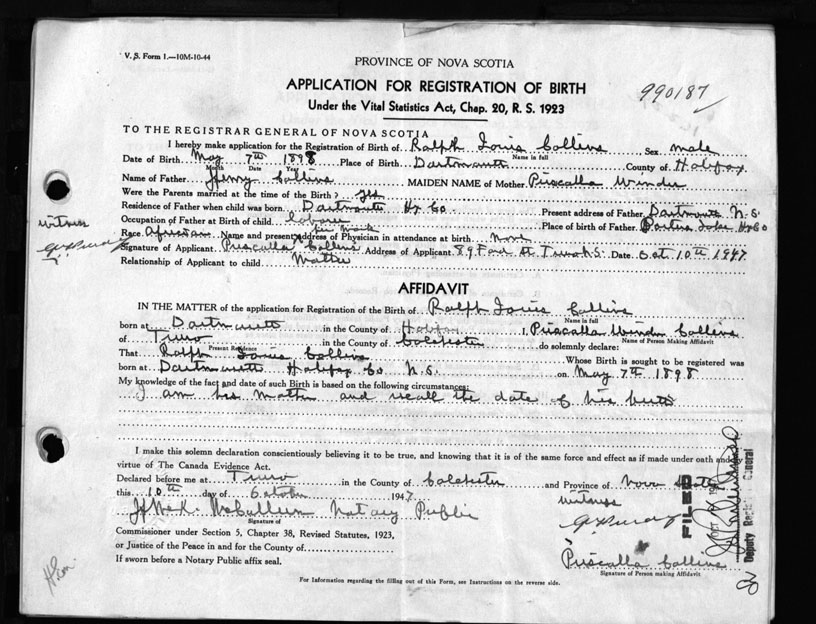 V. S. Form 1.—10M-10-44
PROVINCE OF NOVA SCOTIA
APPLICATION FOR REGISTRATION OF BIRTH
990187
Under the Vital Statistics Act, Chap. 20, R. S. 1923
TO THE REGISTRAR GENERAL OF NOVA SCOTIA
I hereby make application for the Registration of Birth of Ralph Louis Collins Sex male
Name in full
Date of Birth May 7th 1898 Place of Birth Dartmouth County of Halifax
Month Date Year
Name of Father Henry Collins MAIDEN NAME of Mother Priscalla Winder
Were the Parents married at the time of the Birth? yes
Residence of Father when child was born Dartmouth Hx Co. Present address of Father Dartmouth N.S.
witness
Occupation of Father at Birth of child laborer Place of birth of Father Hx Co
Race African Name and present address of Physician in attendance at birth none
Signature of Applicant Priscalla Collins Address of Applicant 89 Ford St Truro N.S. Date Oct. 10th 1947
her mark
Relationship of Applicant to child Mother
AFFIDAVIT
IN THE MATTER of the application for Registration of the Birth of Ralph Louis Collins
Name in full
born at Dartmouth in the County of Halifax I, Priscalla Winder Collins
Name of Person Making Affidavit
of Truro in the County of Colchester do solemnly declare:
Present Residence
That Ralph Louis Collins Whose Birth is sought to be registered was
born at Dartmouth Halifax Co N.S. on May 7th 1898
My knowledge of the fact and date of such Birth is based on the following circumstances:
I am his mother and recall the date of his birth
I make this solemn declaration conscientiously believing it to be true, and knowing that it is of the same force and effect as if made under oath and by
virtue of The Canada Evidence Act.
Declared before me at Truro in the County of Colchester and Province of Nova Scotia
this 10th day of October 1947
witness
McCallum Notary Public
Signature of
Commissioner under Section 5, Chapter 38, Revised Statutes, 1923,
or Justice of the Peace in and for the County of
If sworn before a Notary Public affix seal.
Priscalla Collins
Signature of Person making Affidavit
For Information regarding the filling out of this Form, see Instructions on the reverse side.
FILED
Deputy Registrar General